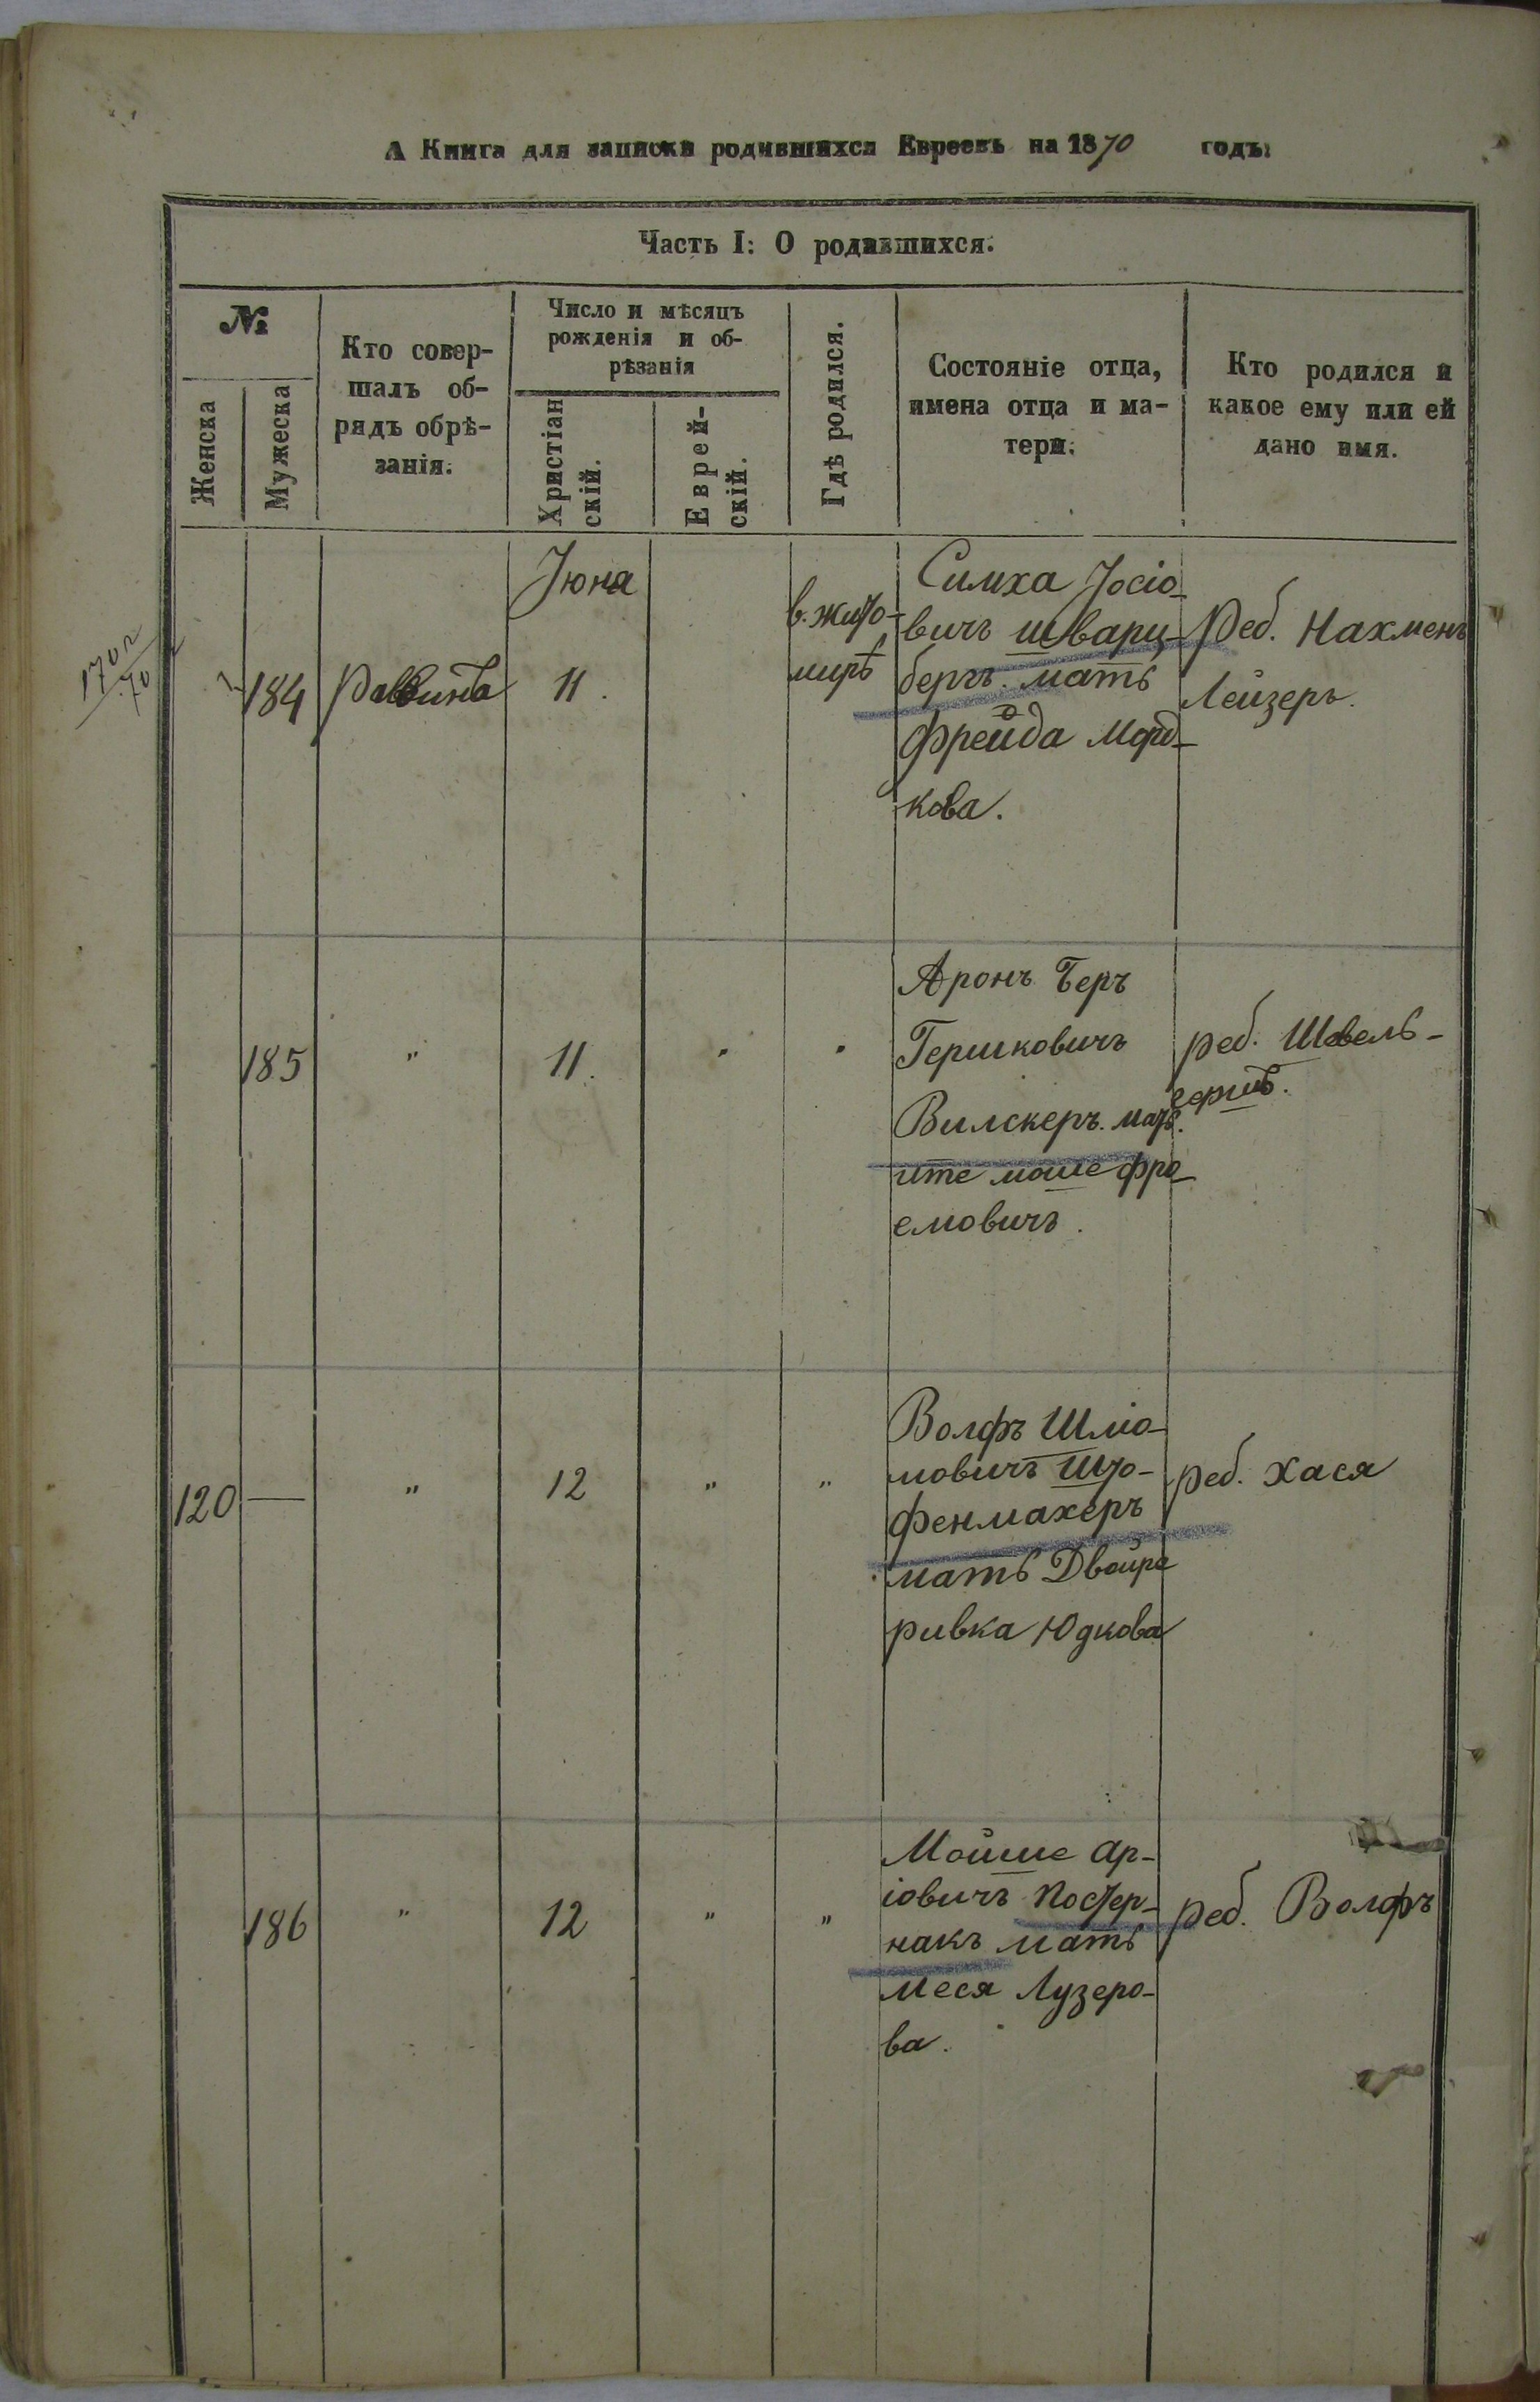 А Книга для записки родившихся Евреевъ на 1870 годъ:
Часть I: О родившихся.
№
Женска
Мужеска
Кто совер-
шалъ об-
рядъ обрѣ-
занія.
Число и мѣсяцъ
рожденія и об-
рѣзанія
Христіан
скій.
Еврей-
скій.
Гдѣ родился.
Состояніе отца,
имена отца и ма-
тери.
Кто родился и
какое ему или ей
дано имя.
1702
70
184
Раввинъ
Іюна
11.
в. жито-
мирѣ
Симха Іосіо-
вичъ шварц-
бергъ. мать
Фрейда Морд-
кова.
Реб. Нахменъ
Лейзеръ.
185
"
11.
"
"
Аронъ Беръ
Гершковичъ
Вилскеръ. мать.
ите моше фро-
емовичъ.
реб. Шевель-
гершъ.
120
—
"
12
"
"
Волфъ Шліо-
мовичъ Што-
фенмахеръ
мать Двойра
ривка Юдкова
реб. Хася
186
"
12
"
"
Мойше Ар-
іовичъ Постер-
накъ мать
меся Лузеро-
ва.
реб. Волфъ